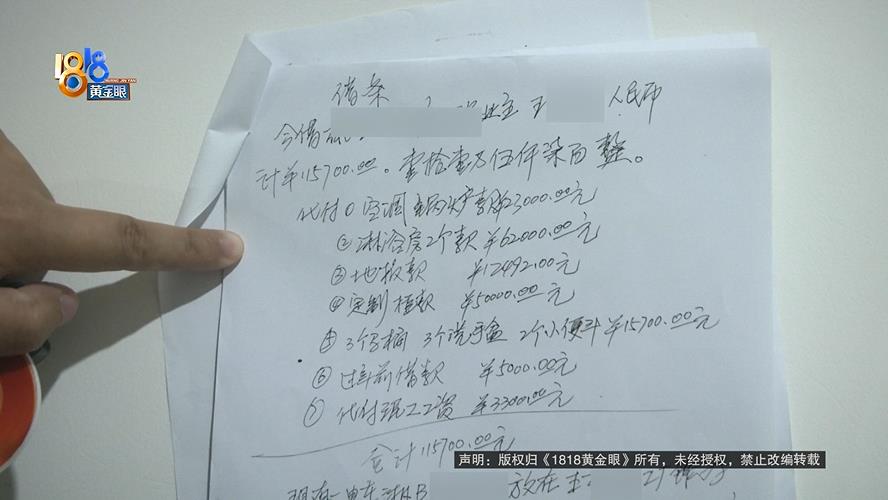 1818
HUANG JIN YAN
黄金眼
借条
今借 业主 王 人民币
计￥115700.00。壹拾壹万伍仟柒百整。
代付①空调 款￥23000.00元
②淋浴房2个款￥62000.00元
③地板款 ￥12492.00元
④定制柜款 ￥50000.00元
⑤3个马桶 3个洗手盆 2个小便斗￥15700.00元
⑥过年前借款 ￥5000.00元
⑦代付 工工资 ￥3300.00元
合计115700.00元
声明：版权归《1818黄金眼》所有，未经授权，禁止改编转载
现有一 车 B 放在 王